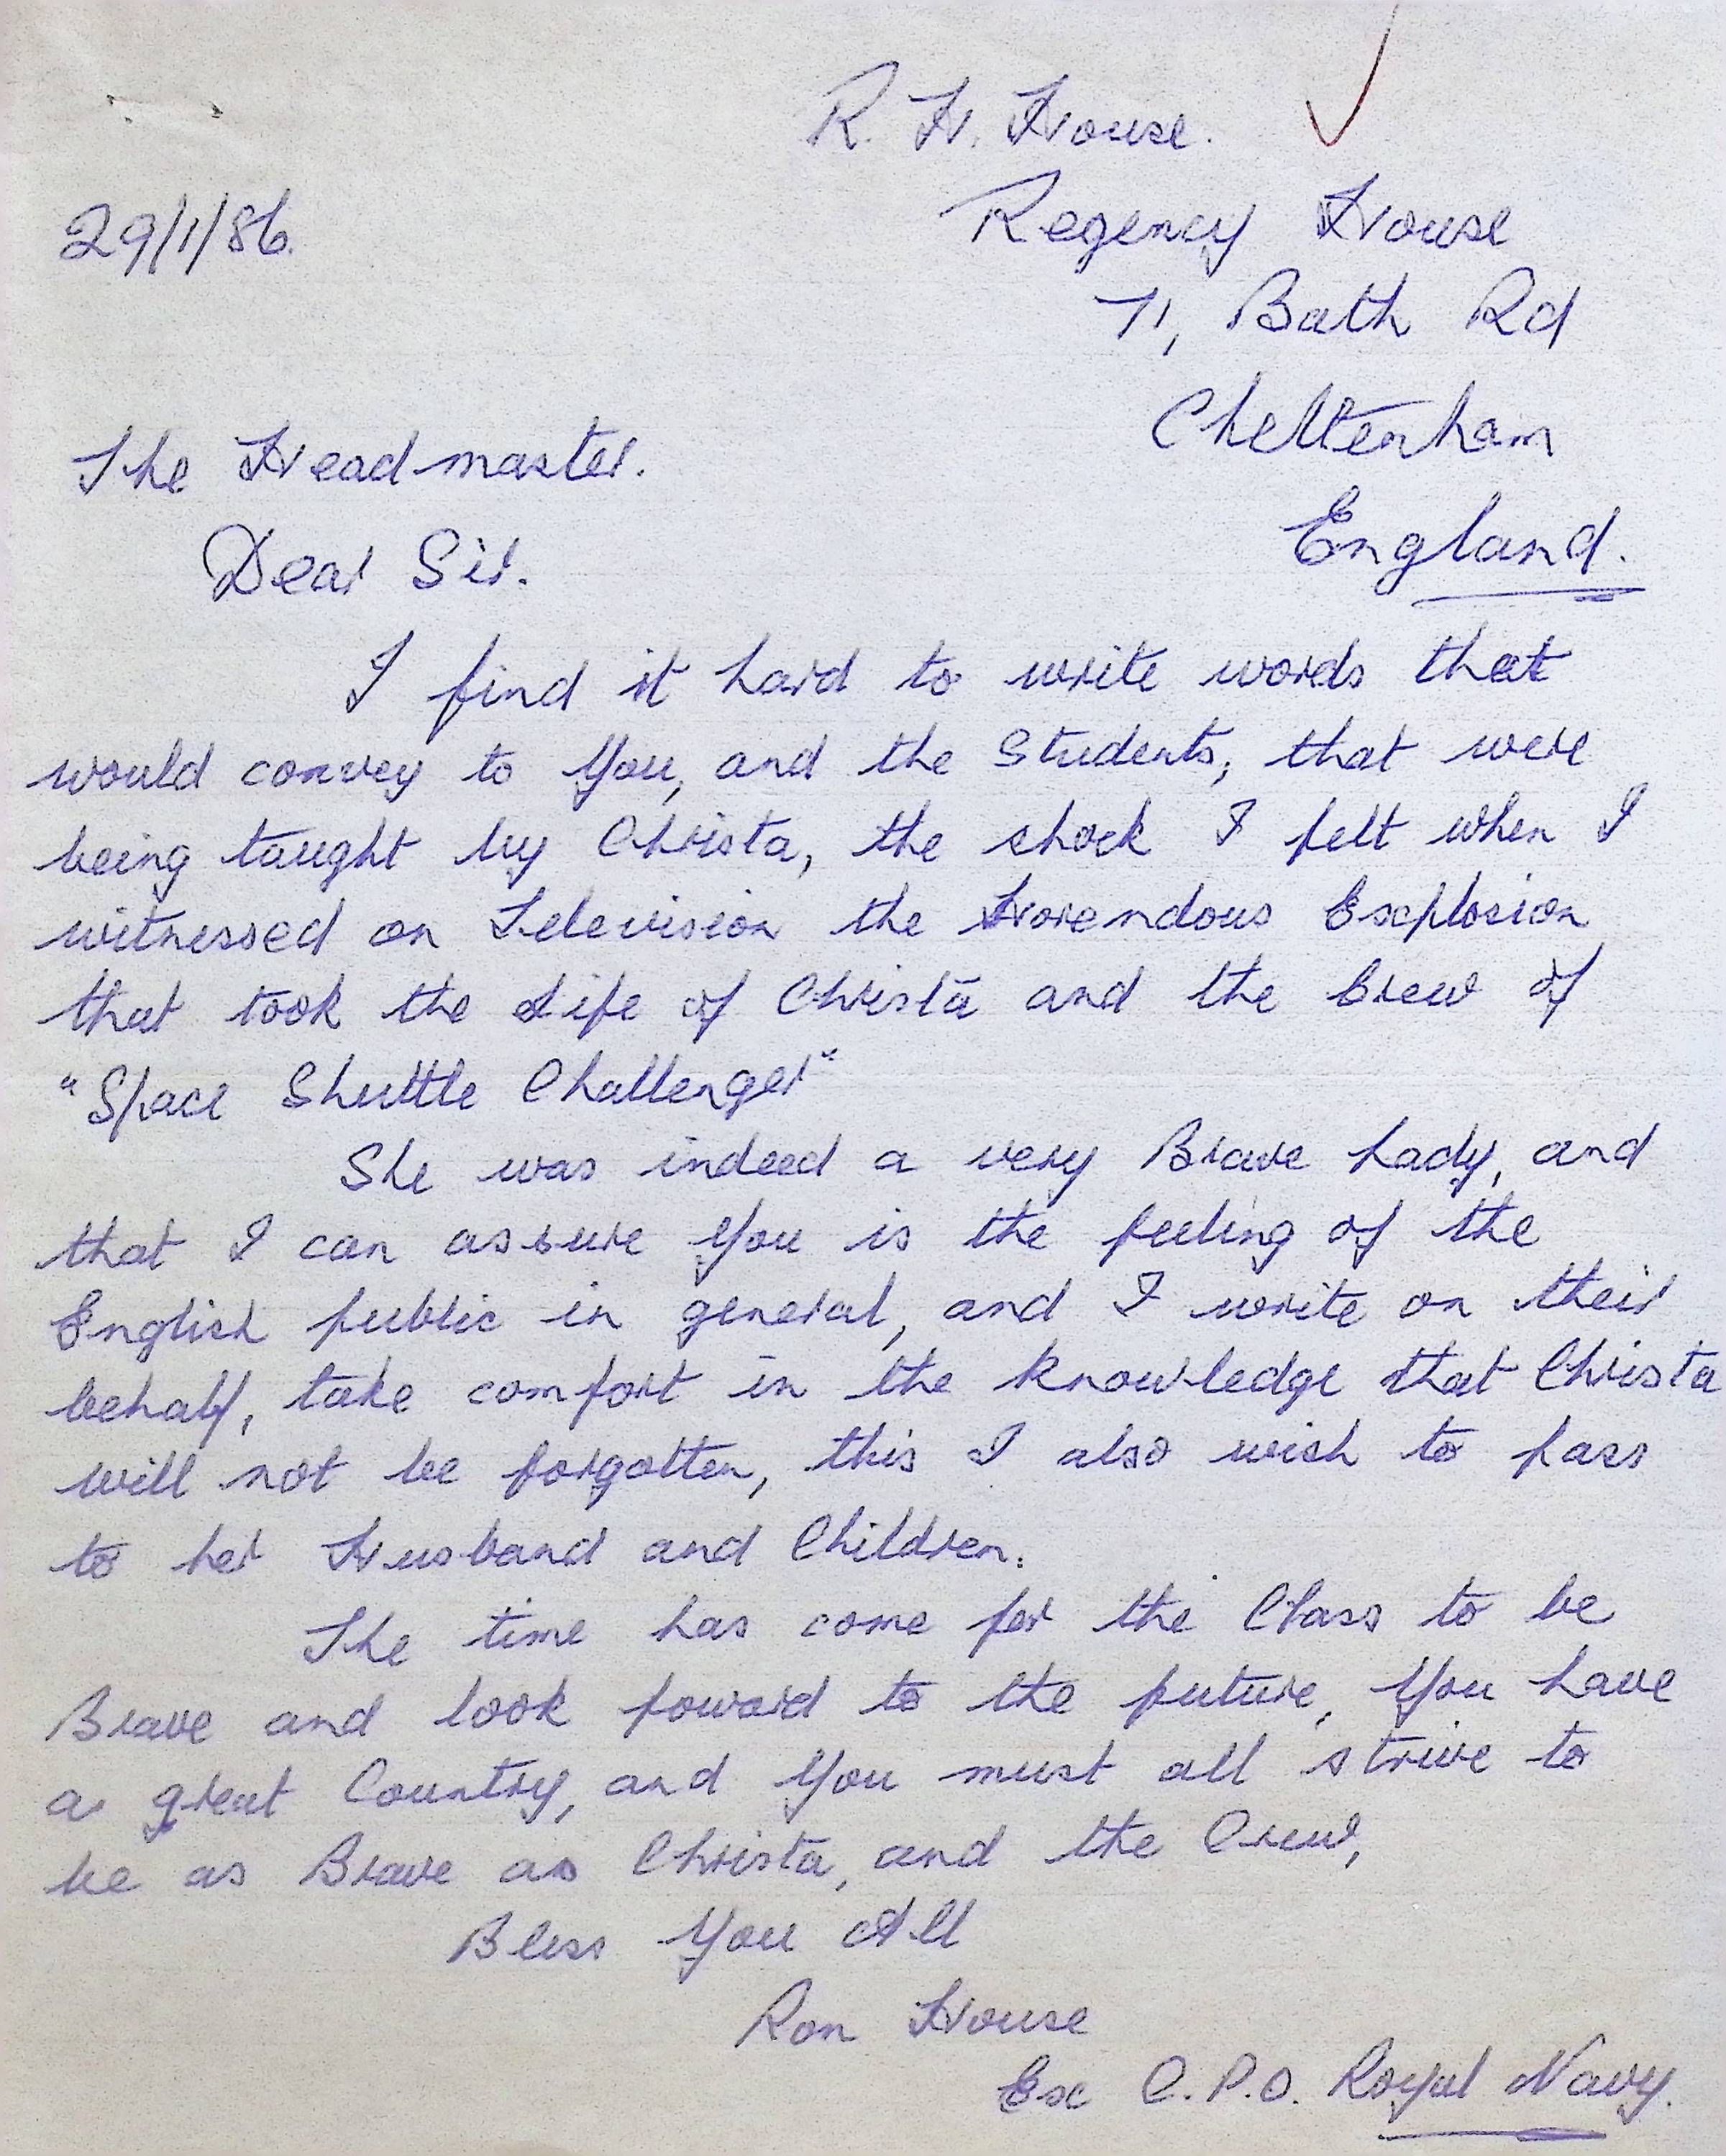 R. H. House.
29/1/86.
Regency House
71, Bath Rd
Cheltenham
England.
The Headmaster.
Dear Sir.
I find it hard to write words that
would convey to You, and the Students, that were
being taught by Christa, the shock I felt when I
witnessed on Television the Horendous Explosion
that took the Life of Christa and the Crew of
"Space Shuttle Challenger"
She was indeed a very Brave Lady, and
that I can assure You is the feeling of the
English public in general, and I write on their
behalf, take comfort in the knowledge that Christa
will not be forgotten, this I also wish to pass
to her Husband and Children.
The time has come for the Class to be
Brave and look foward to the future, You have
a great Country, and You must all strive to
be as Brave as Christa, and the Crew,
Bless You All
Ron House
Ex C.P.O. Royal Navy.